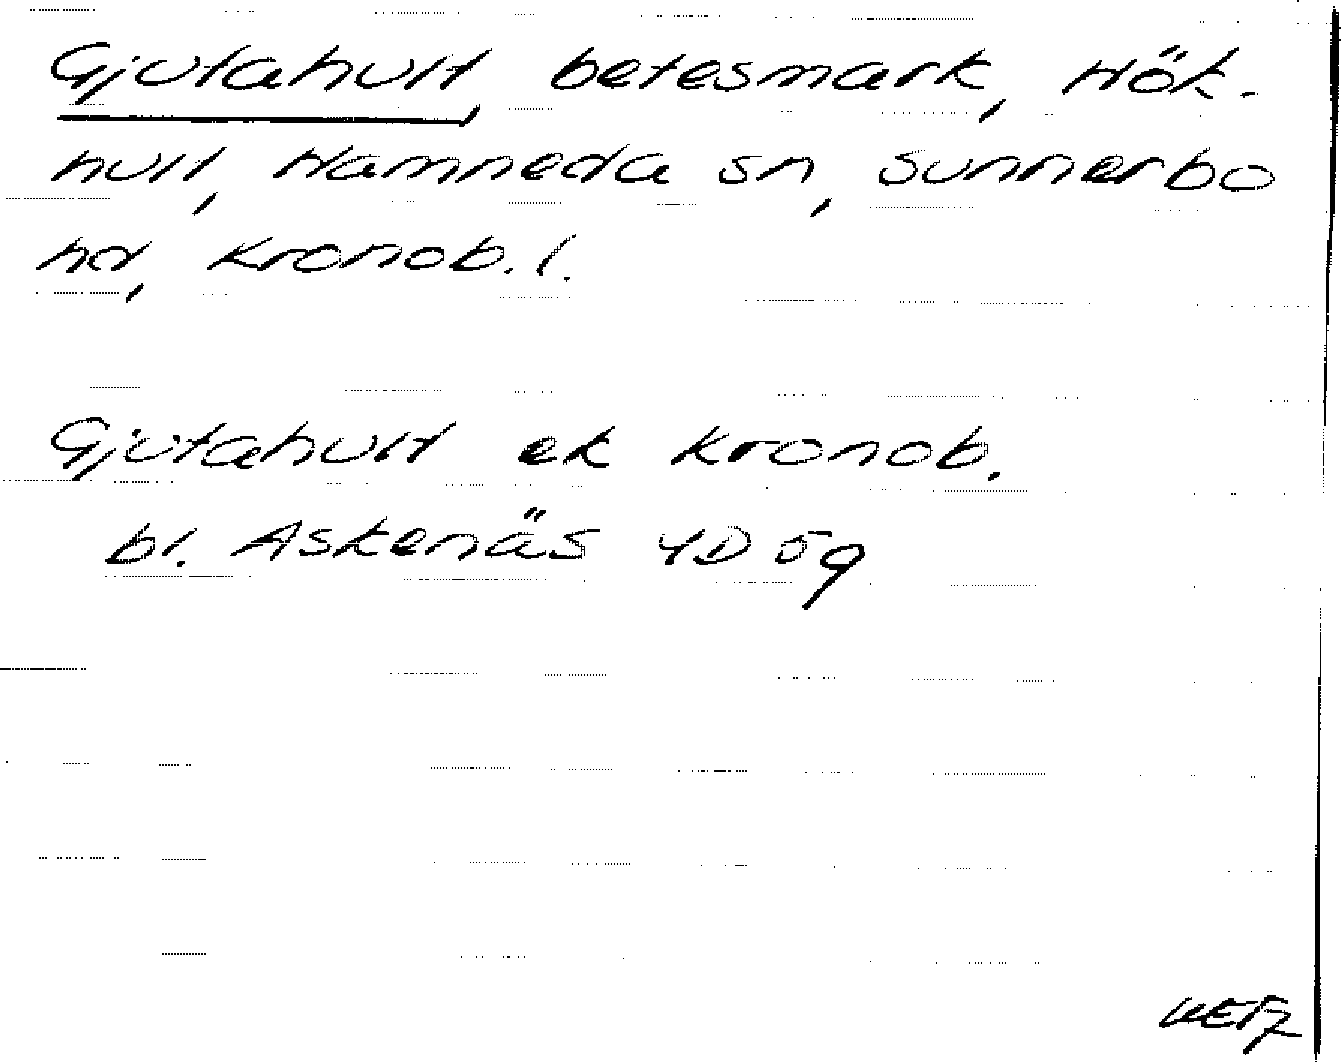 Gjutahult, betesmark, Hök-
hult, Hamneda sn, Sunnerbo
hd, Kronob. l.
Gjutahult ek Kronob.
bl. Askenäs 4D 5g